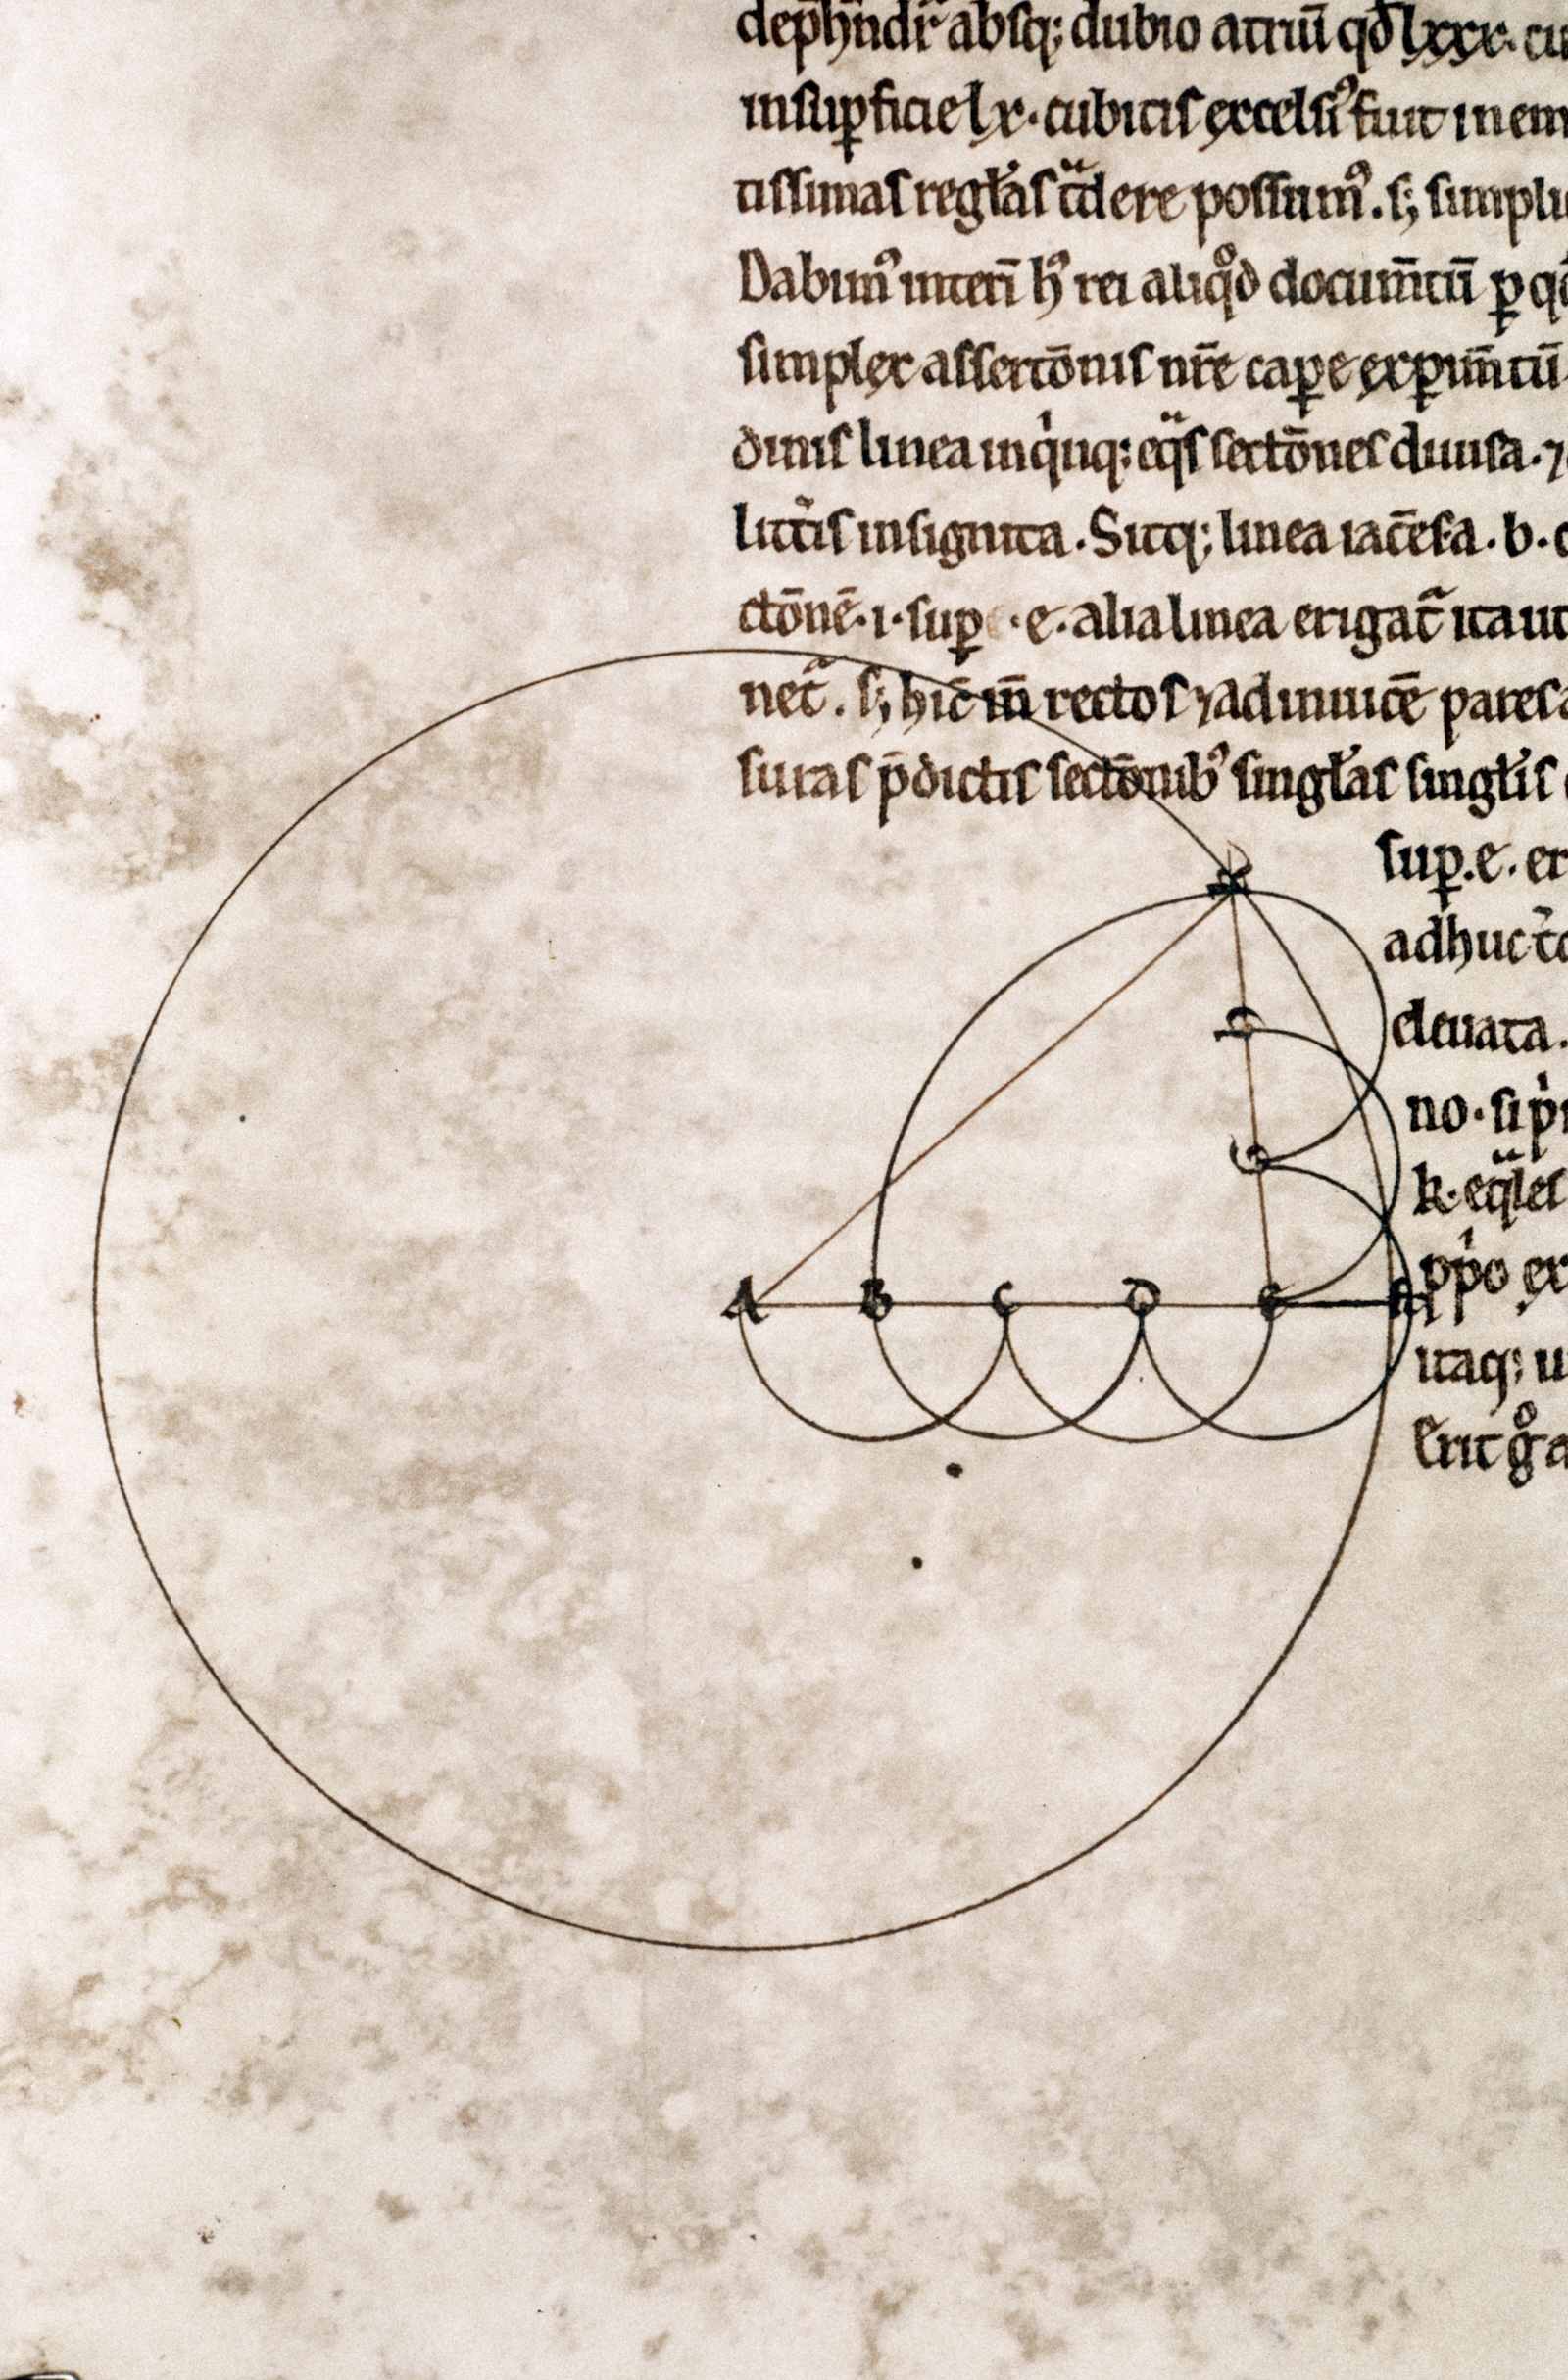 dep̄hn̄dr̃ absq; dubio atriū qd̄ lxxx. cu
in suꝑficie lx. cubitis excelsiꝰ fuit in em
tissimas regl̓as tͣdere possumꝰ. s; simpli
Dabimꝰ interī hꝰ rei aliqͦd docum̄tū ꝑ q
simplex assertōnis nr̄e caꝑe exꝑim̄tū
dinis linea in qⁱnq; eqͣs sectōnes diuisa. ⁊
litt̃is insignita. Sitq; linea iac̄es. a. b. c
ctōnē. i. suꝑ .e. alia linea erigat̃ ita ut
net̃. s; hic̄ m̄ rectos ⁊ ad inuicē pares a
suras p̄dictis sectōnibꝰ singl̓as singl̓is
suꝑ .e. er
adhuc t̃
eleuata.
no. si pⁱ
k. eqͣles
ppⁱo ex
itaq; u
Erit gͦ a
K
G
A B C D E